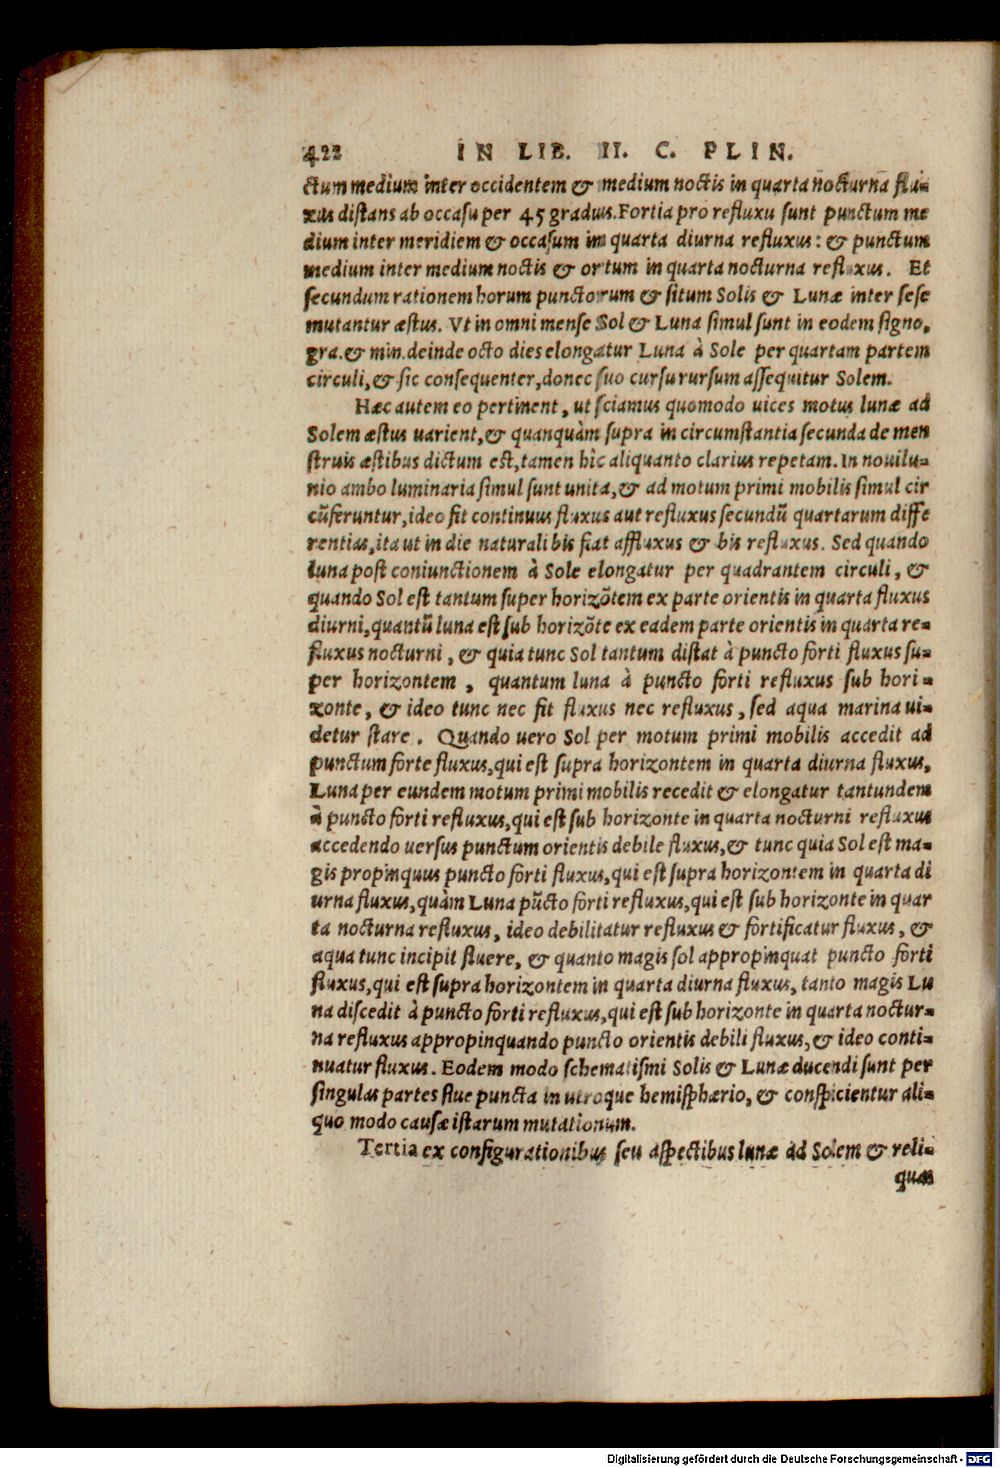 422 IN LIB. II. C. PLIN.
ctum medium inter occidentem & medium noctis in quarta nocturna flu-
xus distans ab occasu per 45 gradus. Fortia pro refluxu sunt punctum me
dium inter meridiem & occasum in quarta diurna refluxus: & punctum
medium inter medium noctis & ortum in quarta nocturna refluxus. Et
secundum rationem horum punctorum & situm Solis & Lunæ inter sese
mutantur æstus. Vt in omni mense Sol & Luna simul sunt in eodem signo,
gra. & min. deinde octo dies elongatur Luna à Sole per quartam partem
circuli, & sic consequenter, donec suo cursu rursum assequitur Solem.
Hæc autem eo pertinent, ut sciamus quomodo uices motus lunæ ad
Solem æstus uarient, & quanquàm supra in circumstantia secunda de men
struis æstibus dictum est, tamen hîc aliquanto clarius repetam. In nouilu-
nio ambo luminaria simul sunt unita, & ad motum primi mobilis simul cir
cũferuntur, ideo fit continuus fluxus aut refluxus secundũ quartarum diffe
rentias, ita ut in die naturali bis fiat affluxus & bis refluxus. Sed quando
luna post coniunctionem à Sole elongatur per quadrantem circuli, &
quando Sol est tantum super horizõtem ex parte orientis in quarta fluxus
diurni, quantũ luna est sub horizõte ex eadem parte orientis in quarta re-
fluxus nocturni, & quia tunc Sol tantum distat à puncto forti fluxus su-
per horizontem, quantum luna à puncto forti refluxus sub hori-
zonte, & ideo tunc nec fit fluxus nec refluxus, sed aqua marina ui-
detur stare. Quando uero Sol per motum primi mobilis accedit ad
punctum forte fluxus, qui est supra horizontem in quarta diurna fluxus,
Luna per eundem motum primi mobilis recedit & elongatur tantundem
à puncto forti refluxus, qui est sub horizonte in quarta nocturni refluxus
accedendo uersus punctum orientis debile fluxus, & tunc quia Sol est ma-
gis propinquus puncto forti fluxus, qui est supra horizontem in quarta di
urna fluxus, quàm Luna pũcto forti refluxus, qui est sub horizonte in quar
ta nocturna refluxus, ideo debilitatur refluxus & fortificatur fluxus, &
aqua tunc incipit fluere, & quanto magis sol appropinquat puncto forti
fluxus, qui est supra horizontem in quarta diurna fluxus, tanto magis Lu
na discedit à puncto forti refluxus, qui est sub horizonte in quarta noctur-
na refluxus appropinquando puncto orientis debili fluxus, & ideo conti-
nuatur fluxus. Eodem modo schematismi Solis & Lunæ ducendi sunt per
singulas partes siue puncta in utroque hemisphærio, & conspicientur ali-
quo modo causæ istarum mutationum.
Tertia ex configurationibus seu aspectibus lunæ ad Solem & reli-
quas
Digitalisierung gefördert durch die Deutsche Forschungsgemeinschaft - DFG